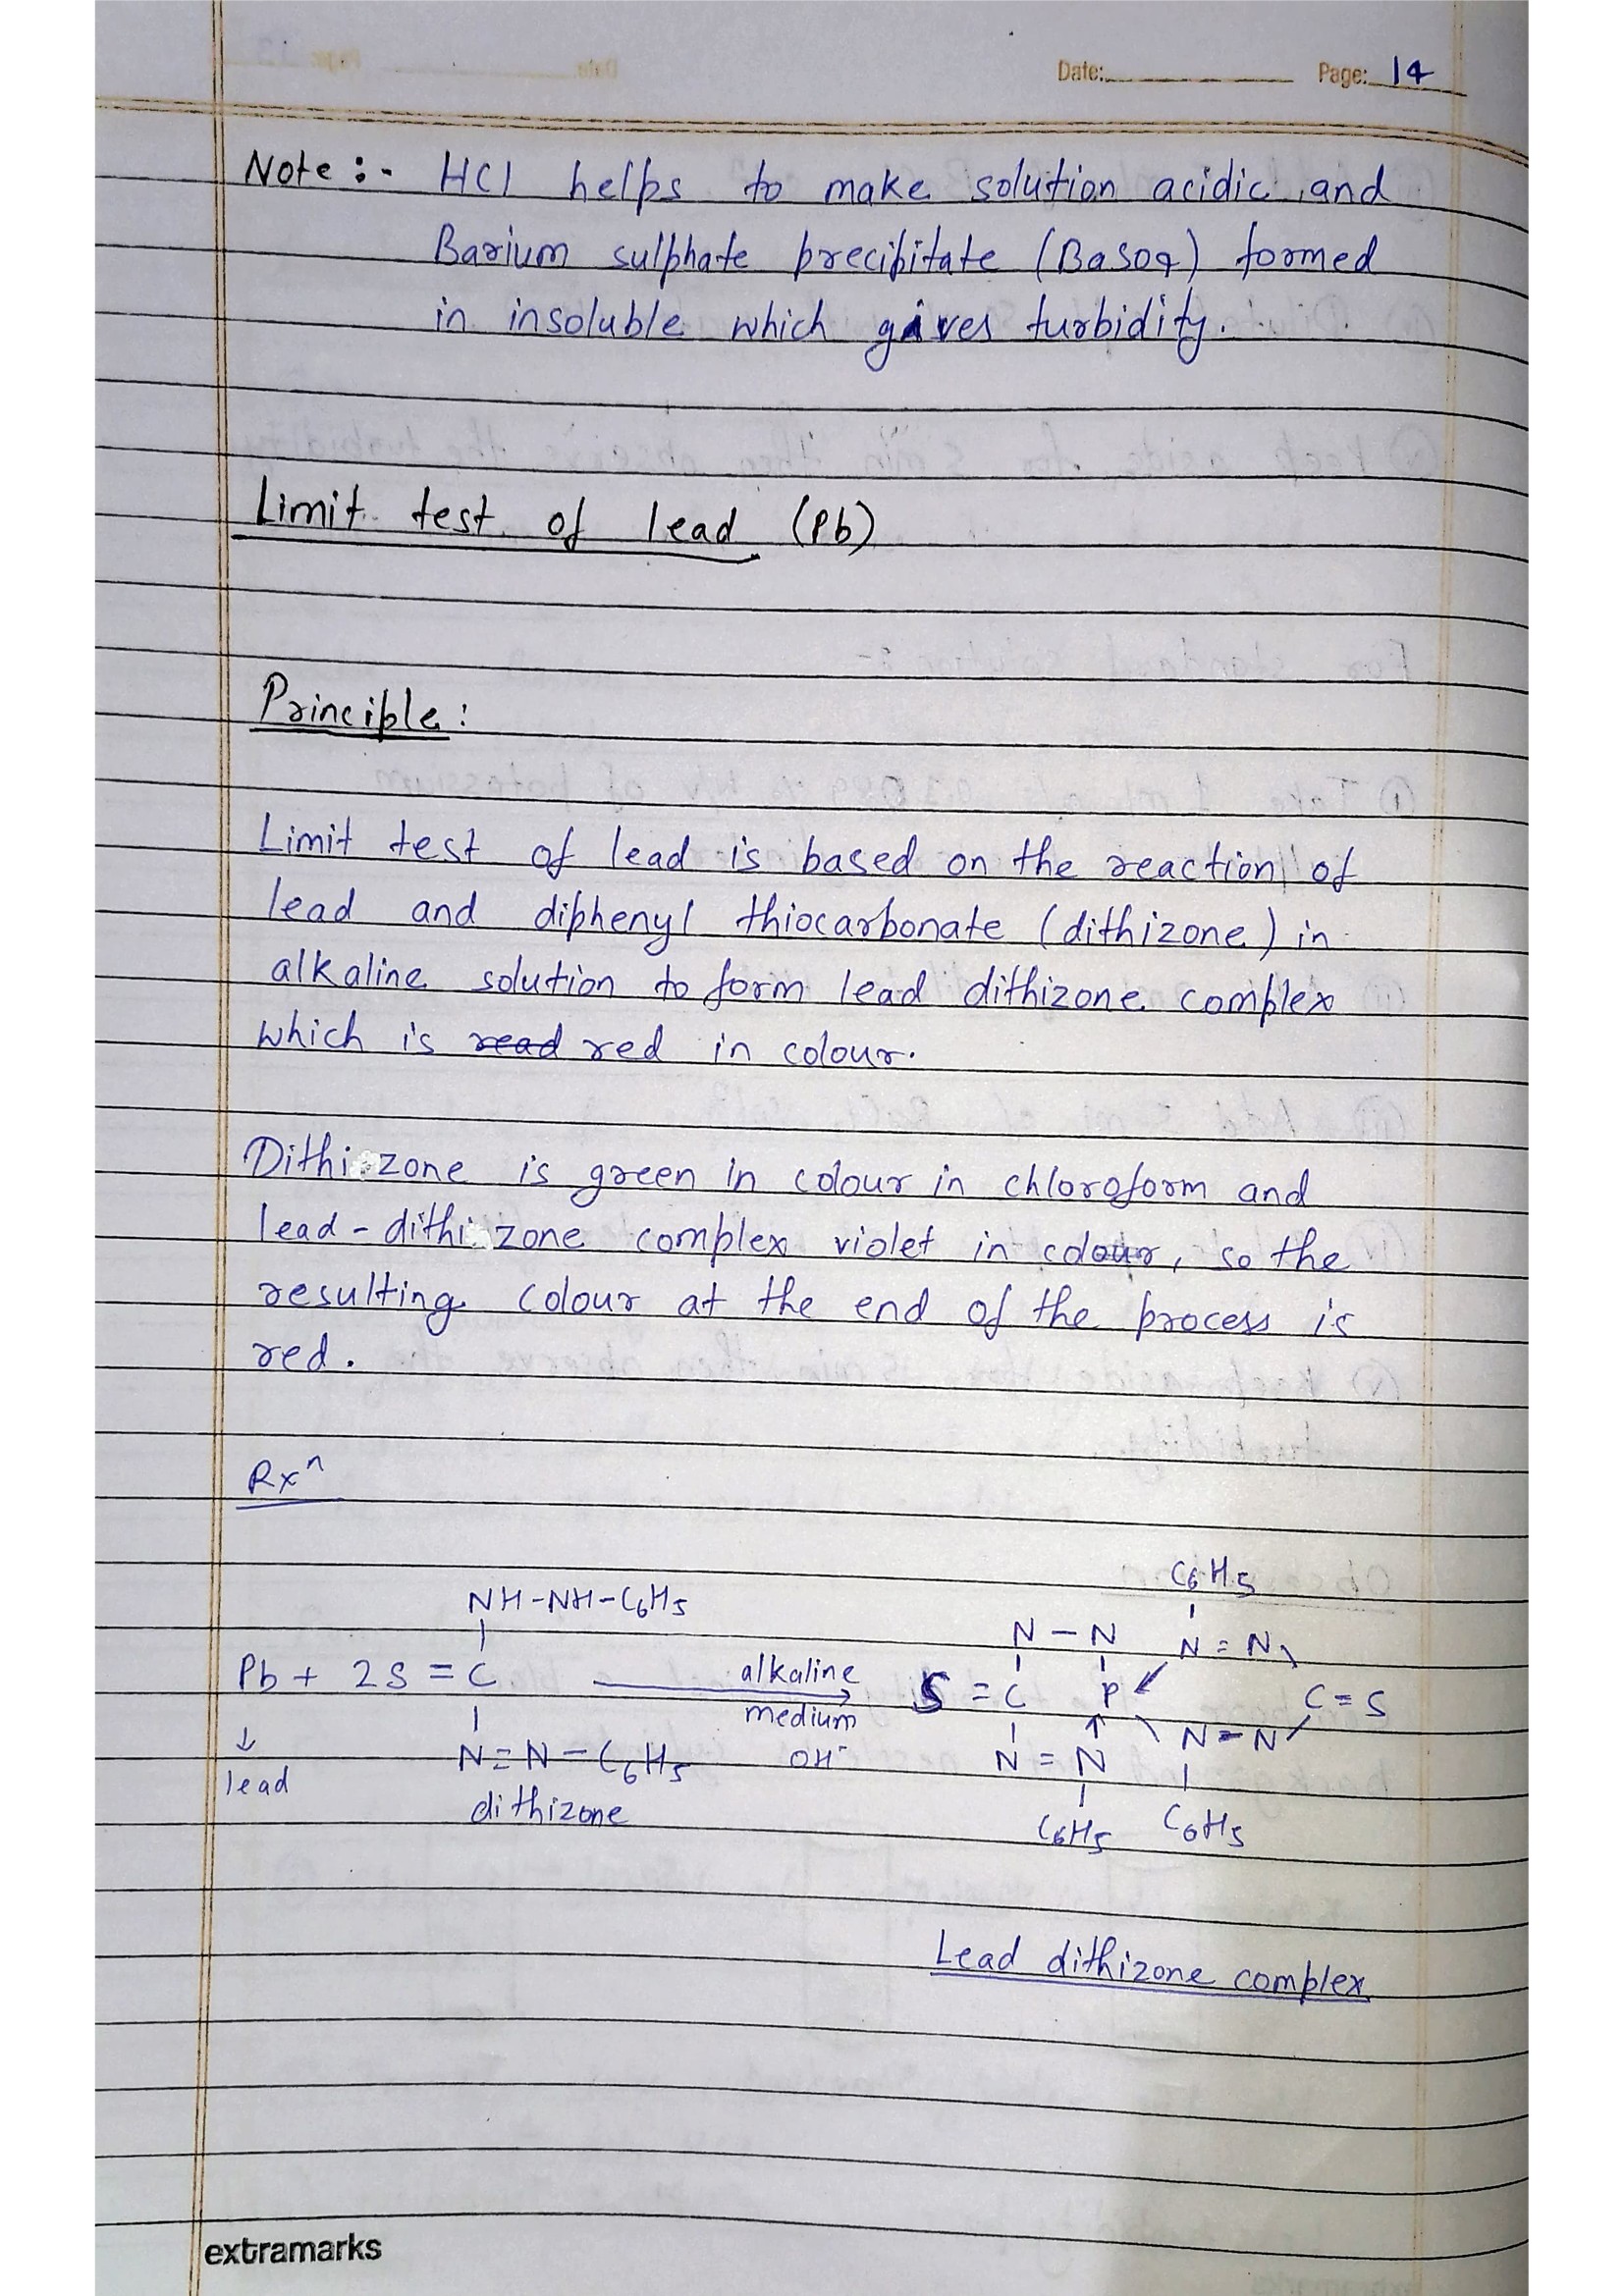 Date: Page: 14
Note :- HCl helps to make solution acidic and
Barium sulphate precipitate (BaSO4) formed
in insoluble which gives turbidity.
Limit test of lead (Pb)
Principle :
Limit test of lead is based on the reaction of
lead and diphenyl thiocarbonate (dithizone) in
alkaline solution to form lead dithizone complex
which is read red in colour.
Dithizone is green in colour in chloroform and
lead-dithizone complex violet in colour, so the
resulting colour at the end of the process is
red.
Rxn
C6H5
NH-NH-C6H5
N - N N = N
Pb + 2S = C alkaline S = C P C = S
medium
N = N
↓ N = N - C6H5 OH- N = N
lead
dithizone
C6H5 C6H5
Lead dithizone complex
extramarks